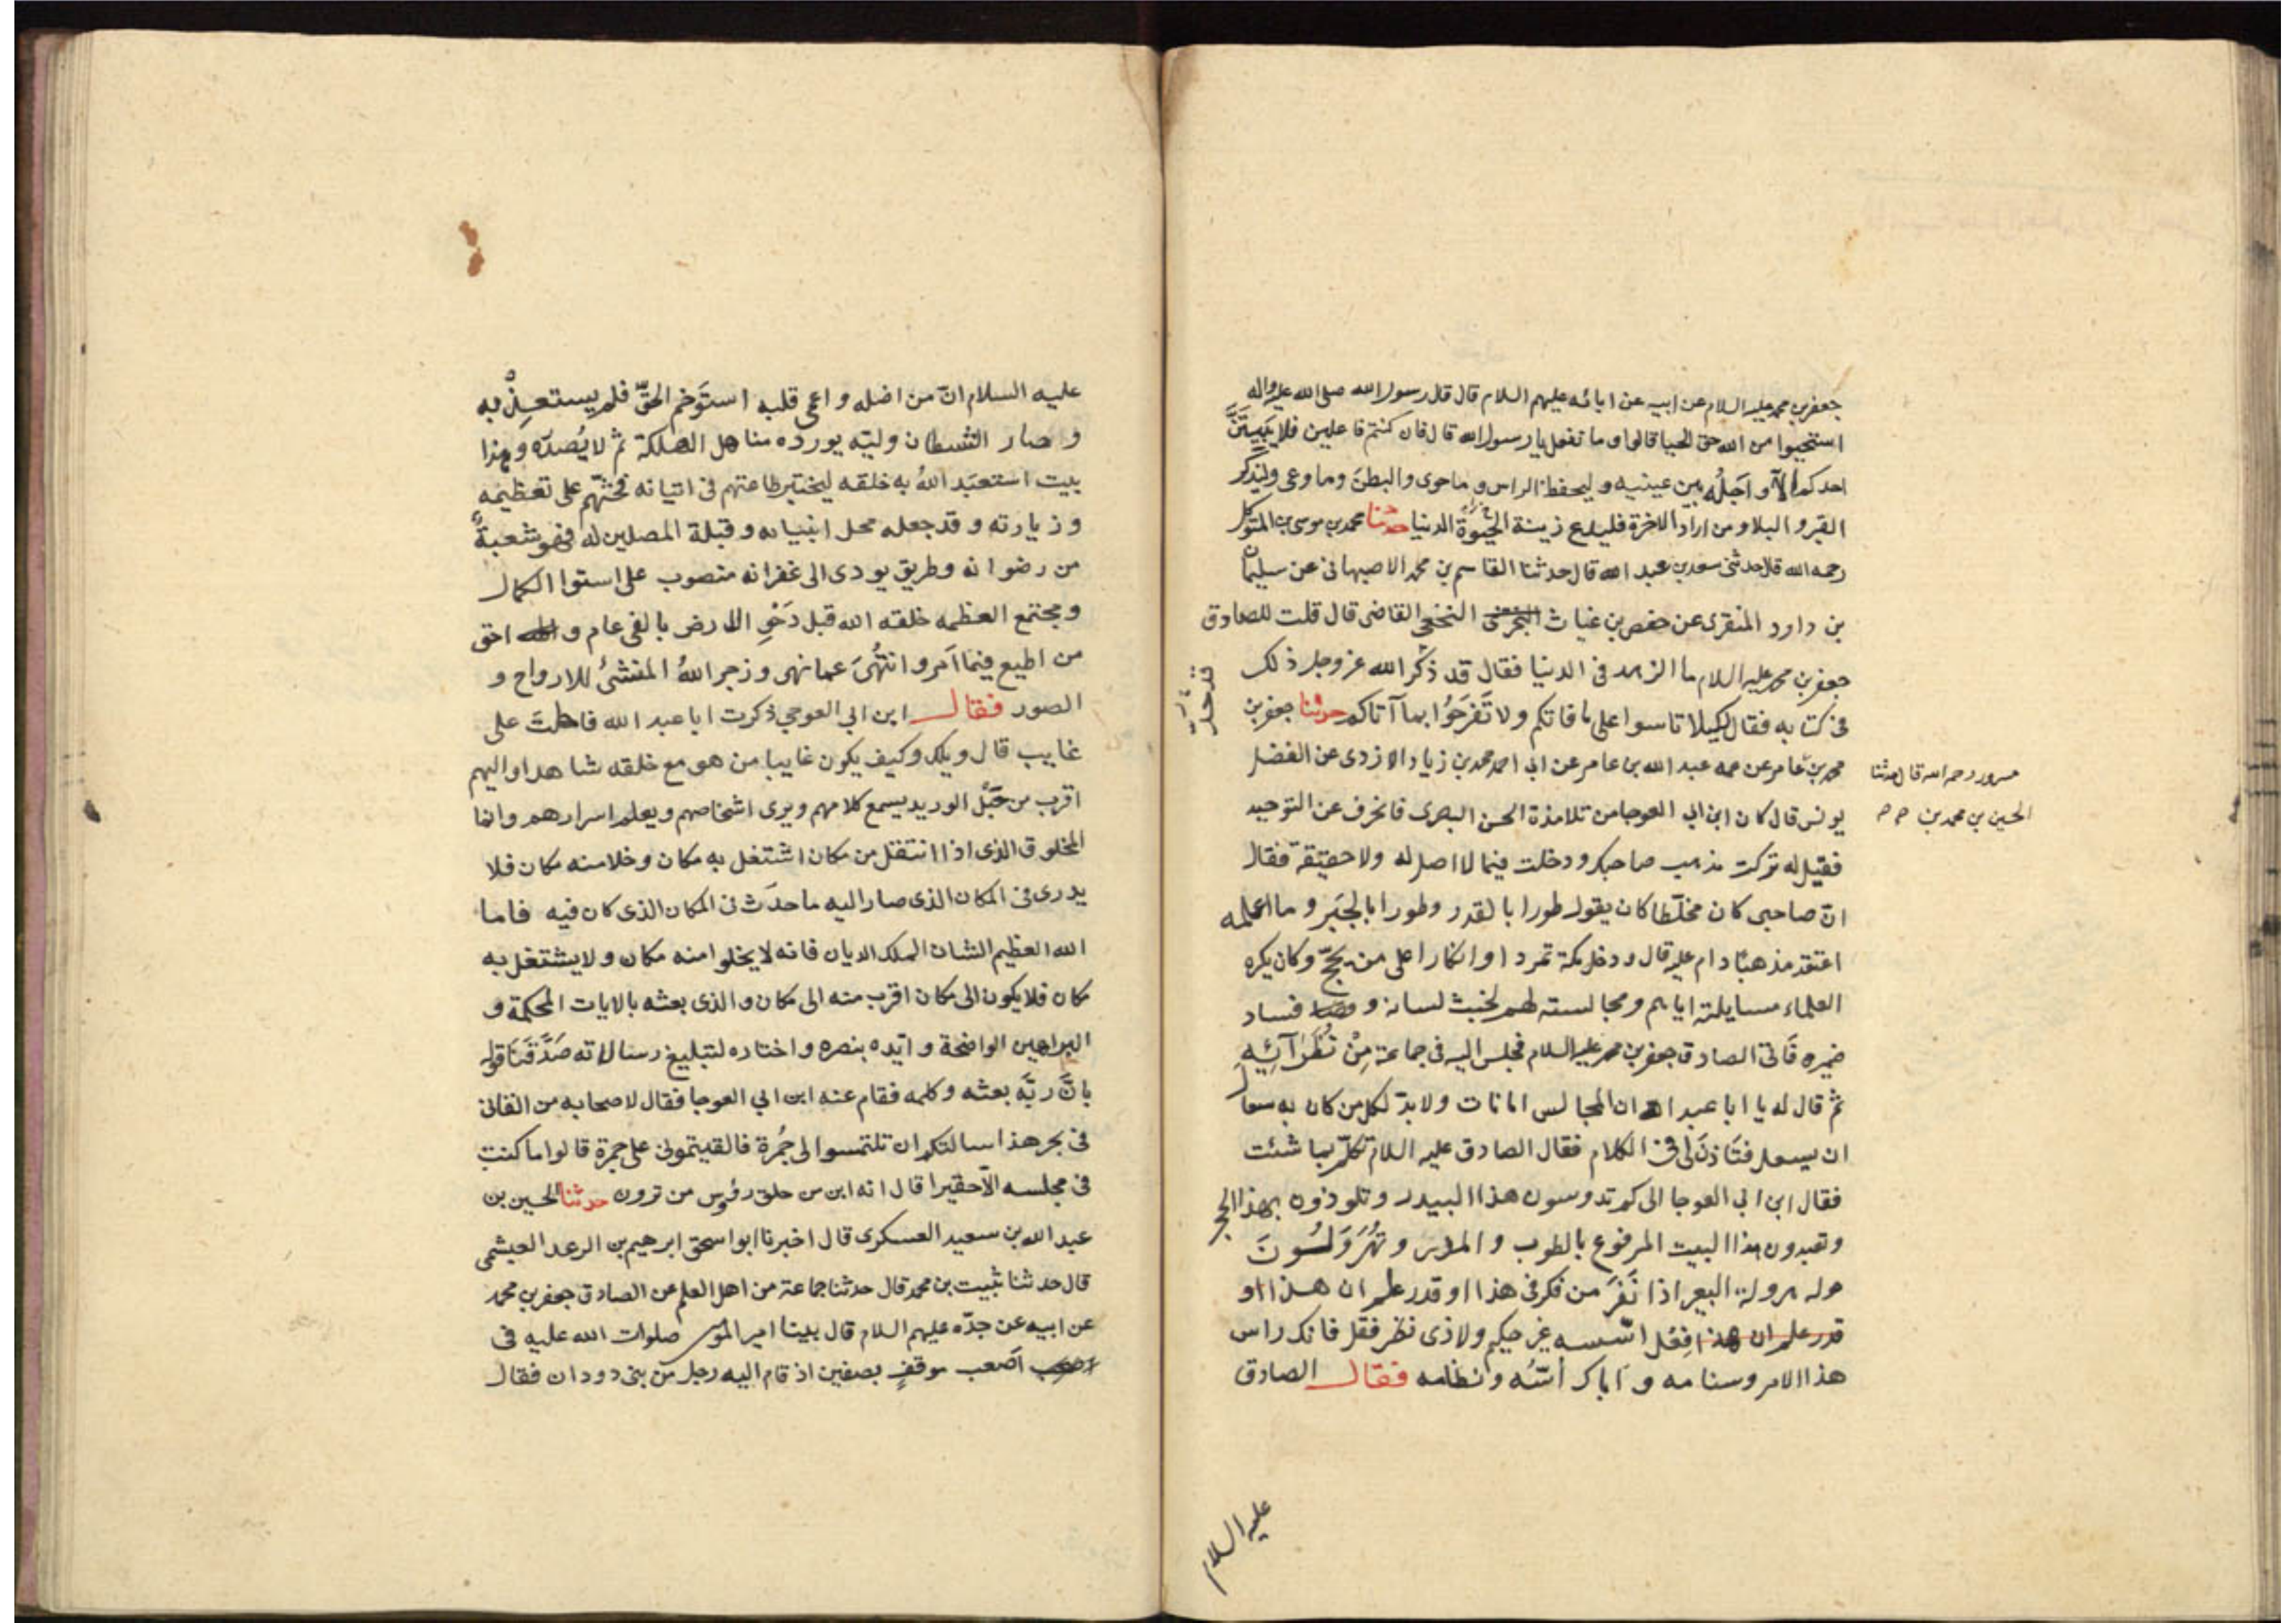 جعفر بن محمد عليه السلام عن ابيه عن ابائه عليهم السلام قال قال رسول الله صلى الله عليه واله
استحيوا من الله حق الحيا قالوا وما نفعل يا رسول الله قال فان كنتم فاعلين فلا يبيتَنَّ
احدكم الا واجلُه بين عينيه وليحفظ الراس وما حوى والبطن وما وعى وليذكر
القبر والبلا ومن اراد الاخرة فليدع زينة الحيوة الدنيا حدثنا محمد بن موسى بن المتوكل
رحمه الله قال حدثنى سعد بن عبد الله قال حدثنا القاسم بن محمد الاصبهانى عن سليمان
بن داود المنقرى عن حفص بن غياث النخعى القاضى قال قلت للصادق
جعفر بن محمد عليه السلام ما الزهد فى الدنيا فقال قد ذكر الله عز وجل ذلك
فى كتابه فقال لكيلا تاسوا على ما فاتكم ولا تَفرَحُوا بما آتاكم حدثنا جعفر بن
محمد بن عامر عن عمه عبد الله بن عامر عن ابى احمد محمد بن زياد الازدى عن الفضل
مسرور رحمه الله قال حدثنا
الحسين بن محمد بن
يونس قال كان ابن ابى العوجا من تلامذة الحسن البصرى فانحرف عن التوحيد
فقيل له تركت مذهب صاحبك ودخلت فيما لا اصل له ولا حقيقة فقال
انّ صاحبى كان مخلّطا كان يقول طورا بالقدر وطورا بالجَبر وما اعلمه
اعتقد مذهبًا دام عليه قال ودخل مكة تمردا وانكارا على من يحجّ وكان يكره
العلماء مسايلته اياهم ومجالسته لهم لخبث لسانه وفساد
ضميره فاتى الصادق جعفر بن محمد عليه السلام فجلس اليه فى جماعة مِنْ نُظَرَآئِهِ
ثم قال له يا ابا عبد الله ان المجالس امانات ولا بدّ لكل من كان به سعال
ان يسعل فتَاذنَ لى فى الكلام فقال الصادق عليه السلام تكلّم بما شئت
فقال ابن ابى العوجا الى كم تدوسون هذا البيدر وتلوذون بهذا الحجر
وتعبدون هذا البيت المرفوع بالطوب والمدر وتُهَرْوَلُونَ
حوله هرولة البعير اذا نَفَرَ من فكر فى هذا او قدر علم ان هذا او
قدر علم ان هذا فِعْل اسّسه غير حكيم ولا ذى نظر فقل فانك راس
هذا الامر وسنامه و اباك اُسّه ونظامه فقال الصادق
عليه السلام
عليه السلام انّ من اضله واعمى قلبه استَوخم الحقّ فلم يستعذِبْه
وصار الشيطان وليّه يورده مناهل الهلكة ثم لا يُصدره وهذا
بيت استعبَد اللهُ به خلقه ليختبر طاعتهم فى اتيانه فحثّهم على تعظيمه
وزيارته وقد جعله محل انبيائه وقبلة المصلين له فهو شعبةٌ
من رضوانه وطريق يودى الى غفرانه منصوب على استوا الكمال
ومجتمع العظمه خلقه الله قبل دَحْوِ الارض بالفى عام و احق
من اطيع فيما اَمر وانتُهىَ عما نهى وزجر اللهُ المنشئُ للارواح و
الصور فقال ابن ابى العوجى ذكرت ابا عبد الله فاحلت على
غايب قال ويلك وكيف يكون غايبا من هو مع خلقه شاهد او اليهم
اقرب من حَبْل الوريد يسمع كلامهم ويرى اشخاصهم ويعلم اسرارهم وانما
المخلوق الذى اذا انتقل من مكان اشتغل به مكان وخلا منه مكان فلا
يدرى فى المكان الذى صار اليه ما حدَث فى المكان الذى كان فيه فاما
الله العظيم الشان الملك الديان فانه لا يخلوا منه مكان ولا يشتغل به
مكان فلا يكون الى مكان اقرب منه الى مكان والذى بعثه بالايات المحكمة و
البراهين الواضحة وايّده بنصره واختاره لتبليغ رسالاته صَدَّقنَا قوله
بانّ ربّه بعثه وكلمه فقام عنه ابن ابى العوجا فقال لاصحابه من القانى
فى بحر هذا سالتكم ان تلتمسوا لى خُمرة فالقيتمونى على جمرة قالوا ما كنت
فى مجلسه الّا حقيرا قال انه ابن من حلق رؤس من ترون حدثنا الحسين بن
عبد الله بن سعيد العسكرى قال اخبرنا ابو اسحق ابرهيم بن الرعد العبشمى
قال حدثنا ثبيت بن محمد قال حدثنا جماعة من اهل العلم عن الصادق جعفر بن محمد
عن ابيه عن جدّه عليهم السلام قال بينا امير المومنين صلوات الله عليه فى
اصعب موقفٍ بصفين اذ قام اليه رجل من بنى دودان فقال